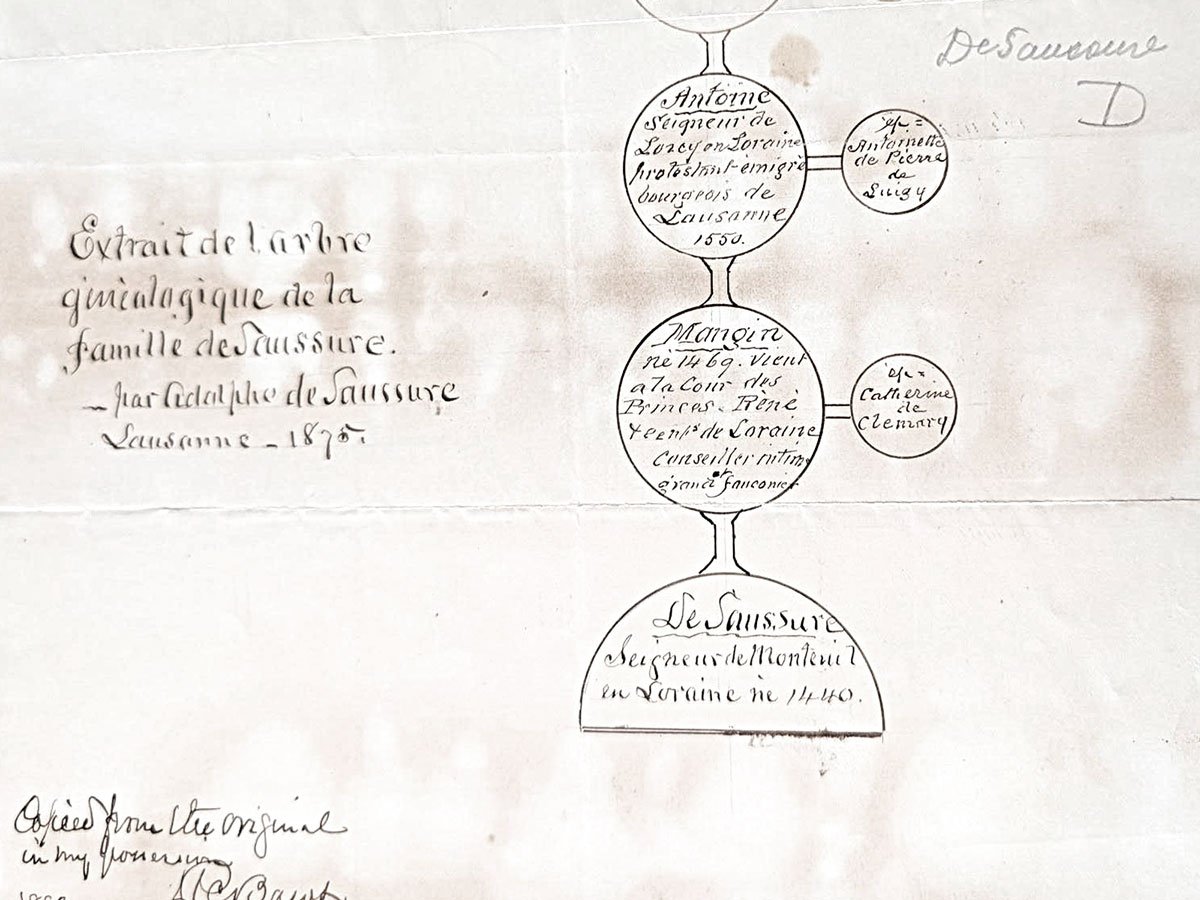 DeSaucoure
D
Antoine
Seigneur de
Lorcy en Loraine
protestant émigré
bourgeois de
Lausanne
1550.
ép =
Antoinette
de Pierre
de
Luigy
Extrait de l'arbre
généalogique de la
famille de Saussure.
par Adolphe de Saussure
Lausanne - 1875.
Mangin
né 1469. vient
a la Cour des
Princes. Réné
de Loraine
Conseiller intim
grand fauconier
ép =
Catherine
de
Clemary
De Saussure
Seigneur de Monteuil
en Loraine né 1440.
Copied from the original
in my possession